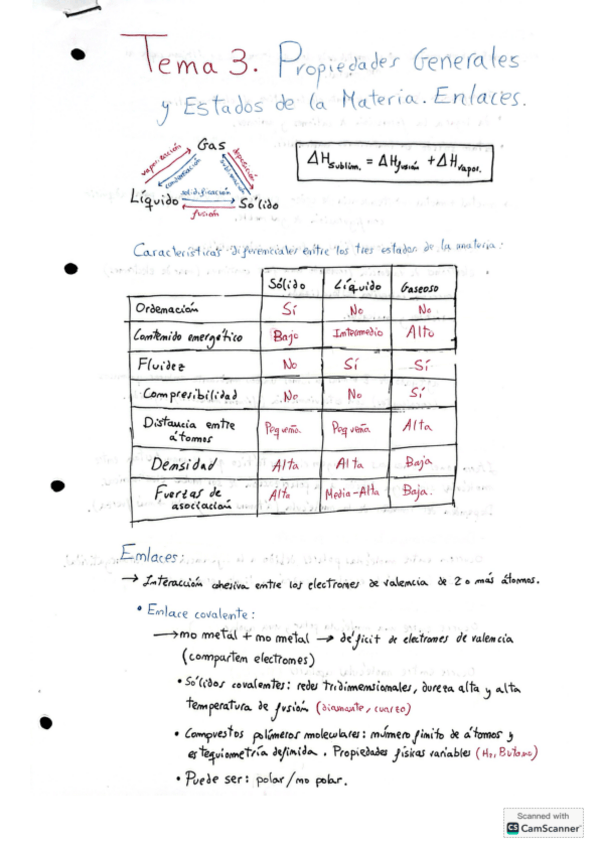 Tema 3. Propiedades Generales
y Estados de la Materia. Enlaces.
Gas
vaporización
condensación
deposición
sublimación
Líquido
solidificación
fusión
Sólido
ΔHsublim. = ΔHfusión + ΔHvapor.
Características diferenciales entre los tres estados de la materia:
Sólido Líquido Gaseoso
Ordenación Sí No No
Contenido energético Bajo Intermedio Alto
Fluidez No Sí Sí
Compresibilidad No No Sí
Distancia entre átomos Pequeña Pequeña Alta
Densidad Alta Alta Baja
Fuerzas de asociación Alta Media-Alta Baja.
Enlaces:
→ Interacción cohesiva entre los electrones de valencia de 2 o más átomos.
• Enlace covalente:
→ no metal + no metal → déficit de electrones de valencia
(comparten electrones)
• Sólidos covalentes: redes tridimensionales, dureza alta y alta
temperatura de fusión (diamante, cuarzo)
• Compuestos polímeros moleculares: número finito de átomos y
estequiometría definida. Propiedades físicas variables (H₂, Butano)
• Puede ser: polar/no polar.
Scanned with
CS CamScanner